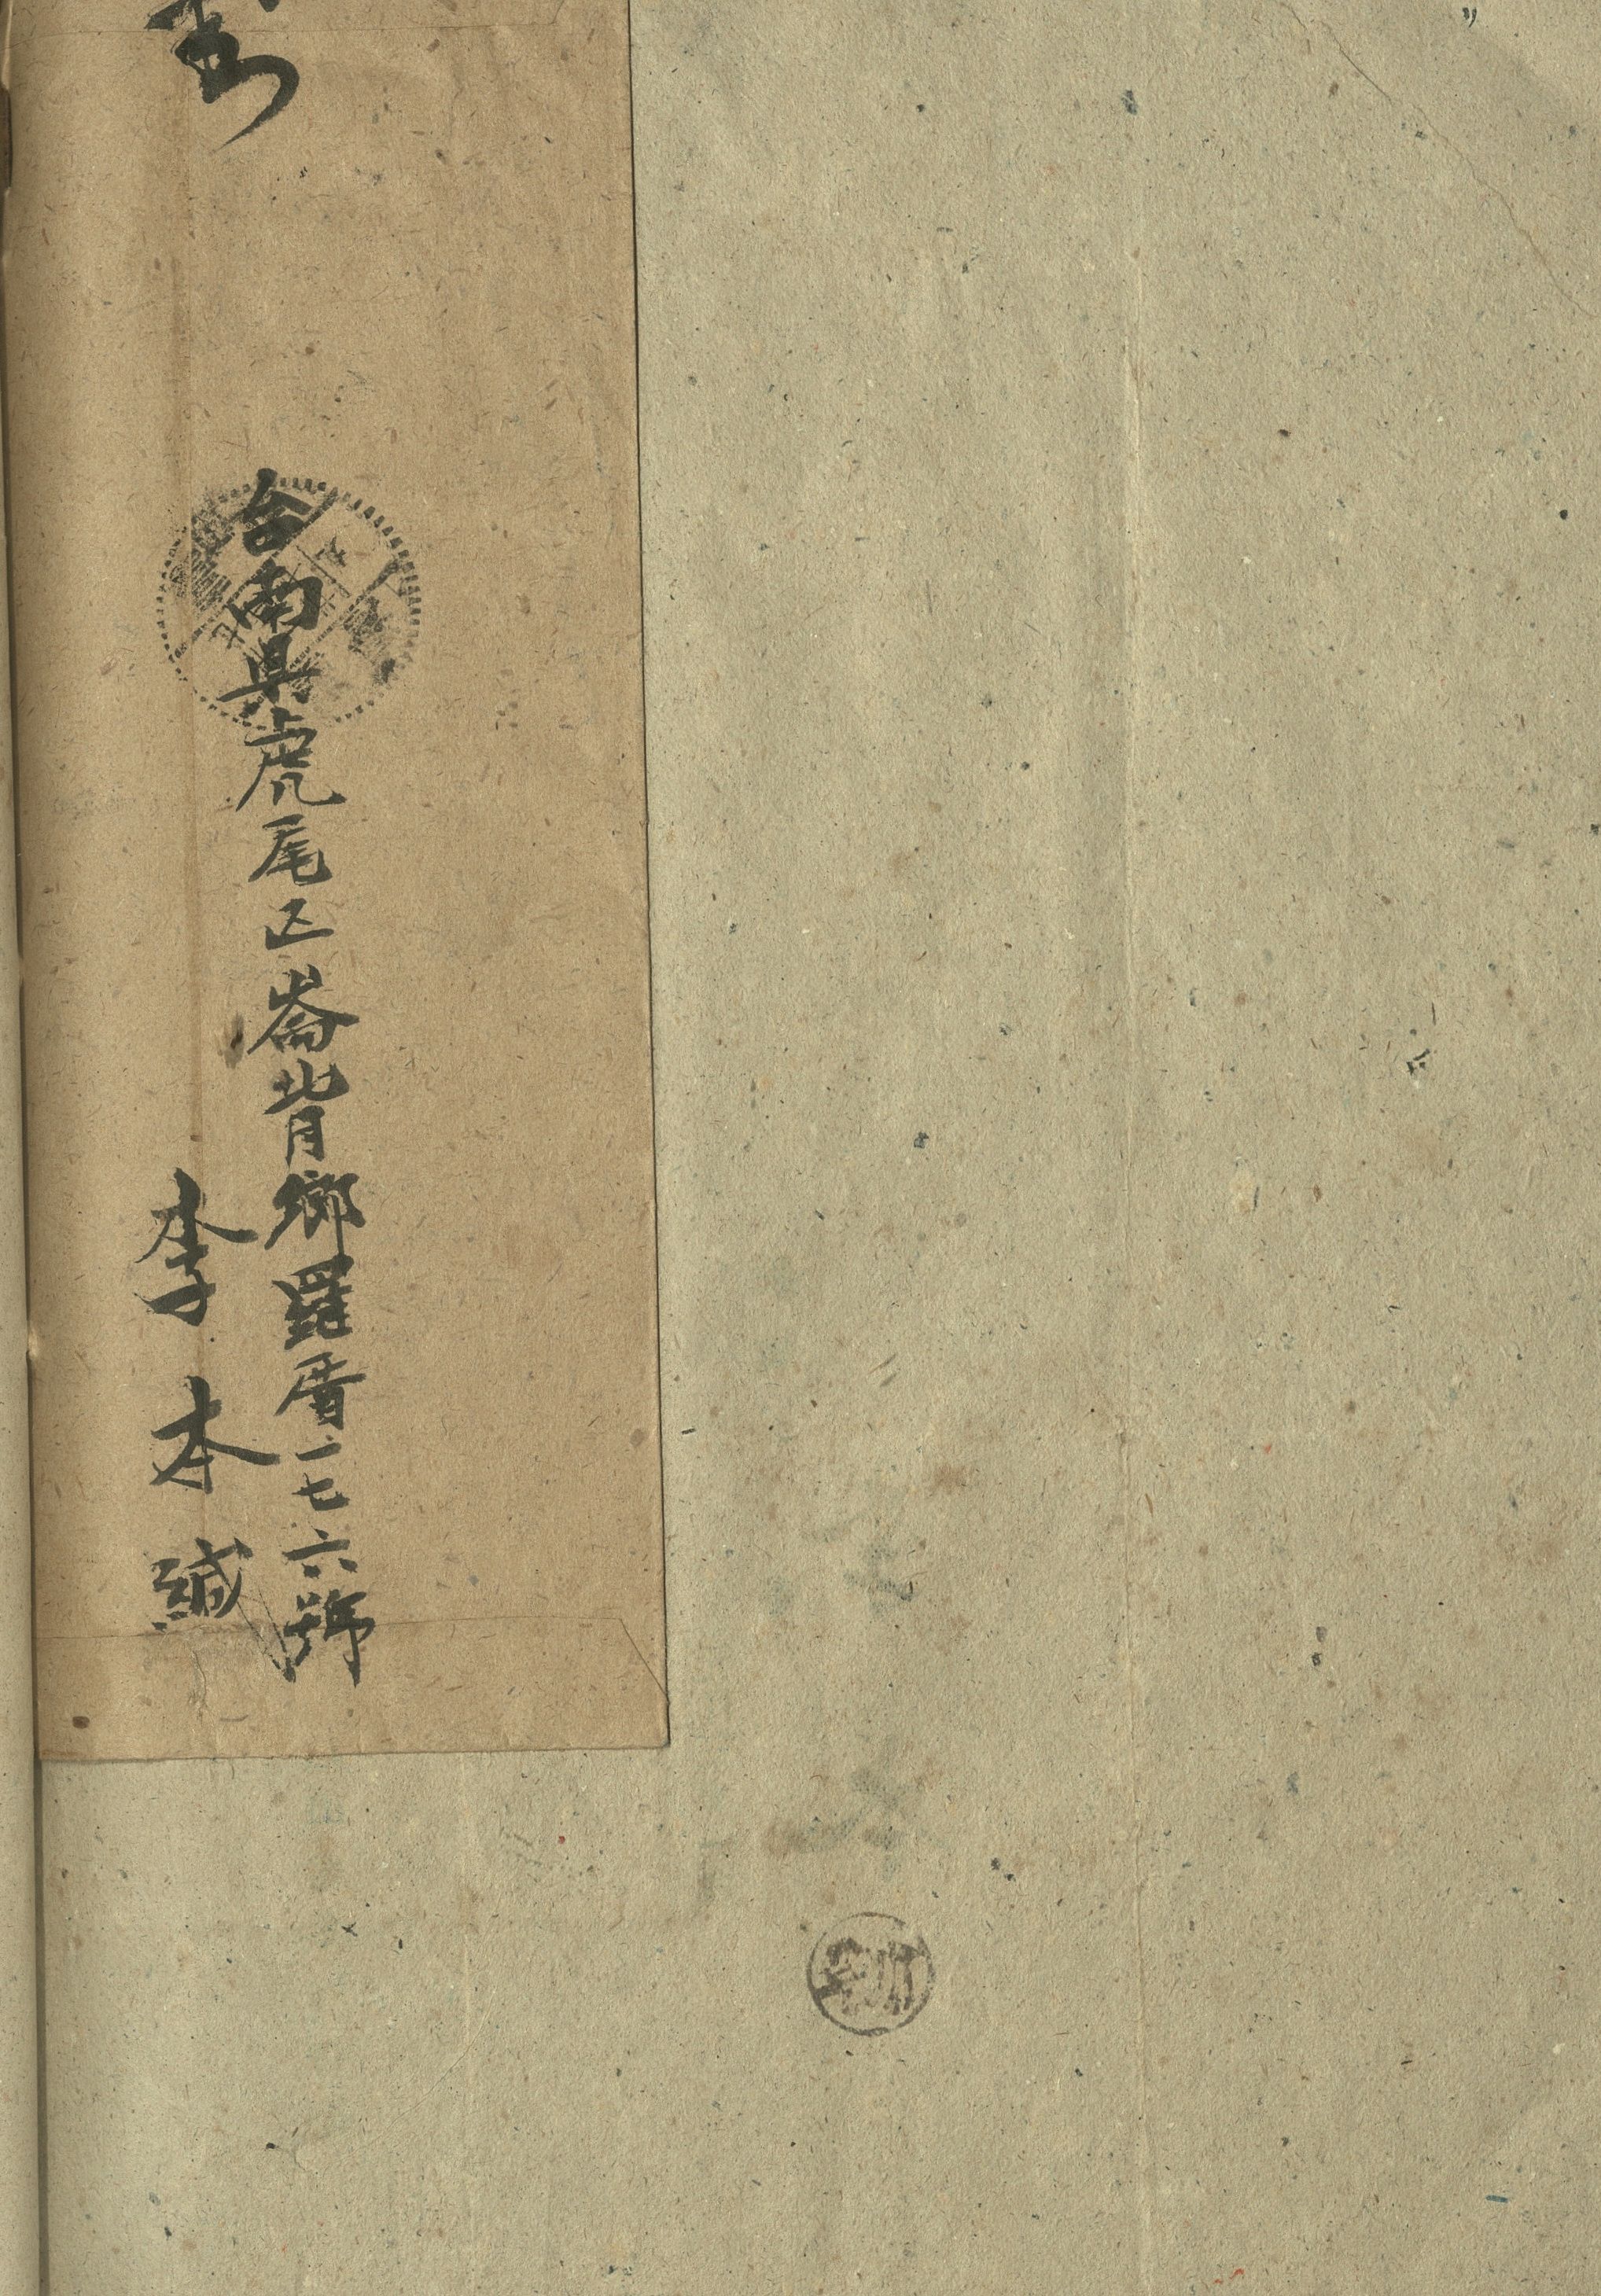 台南県虎尾区崙背鄉羅厝一七六號
李本緘